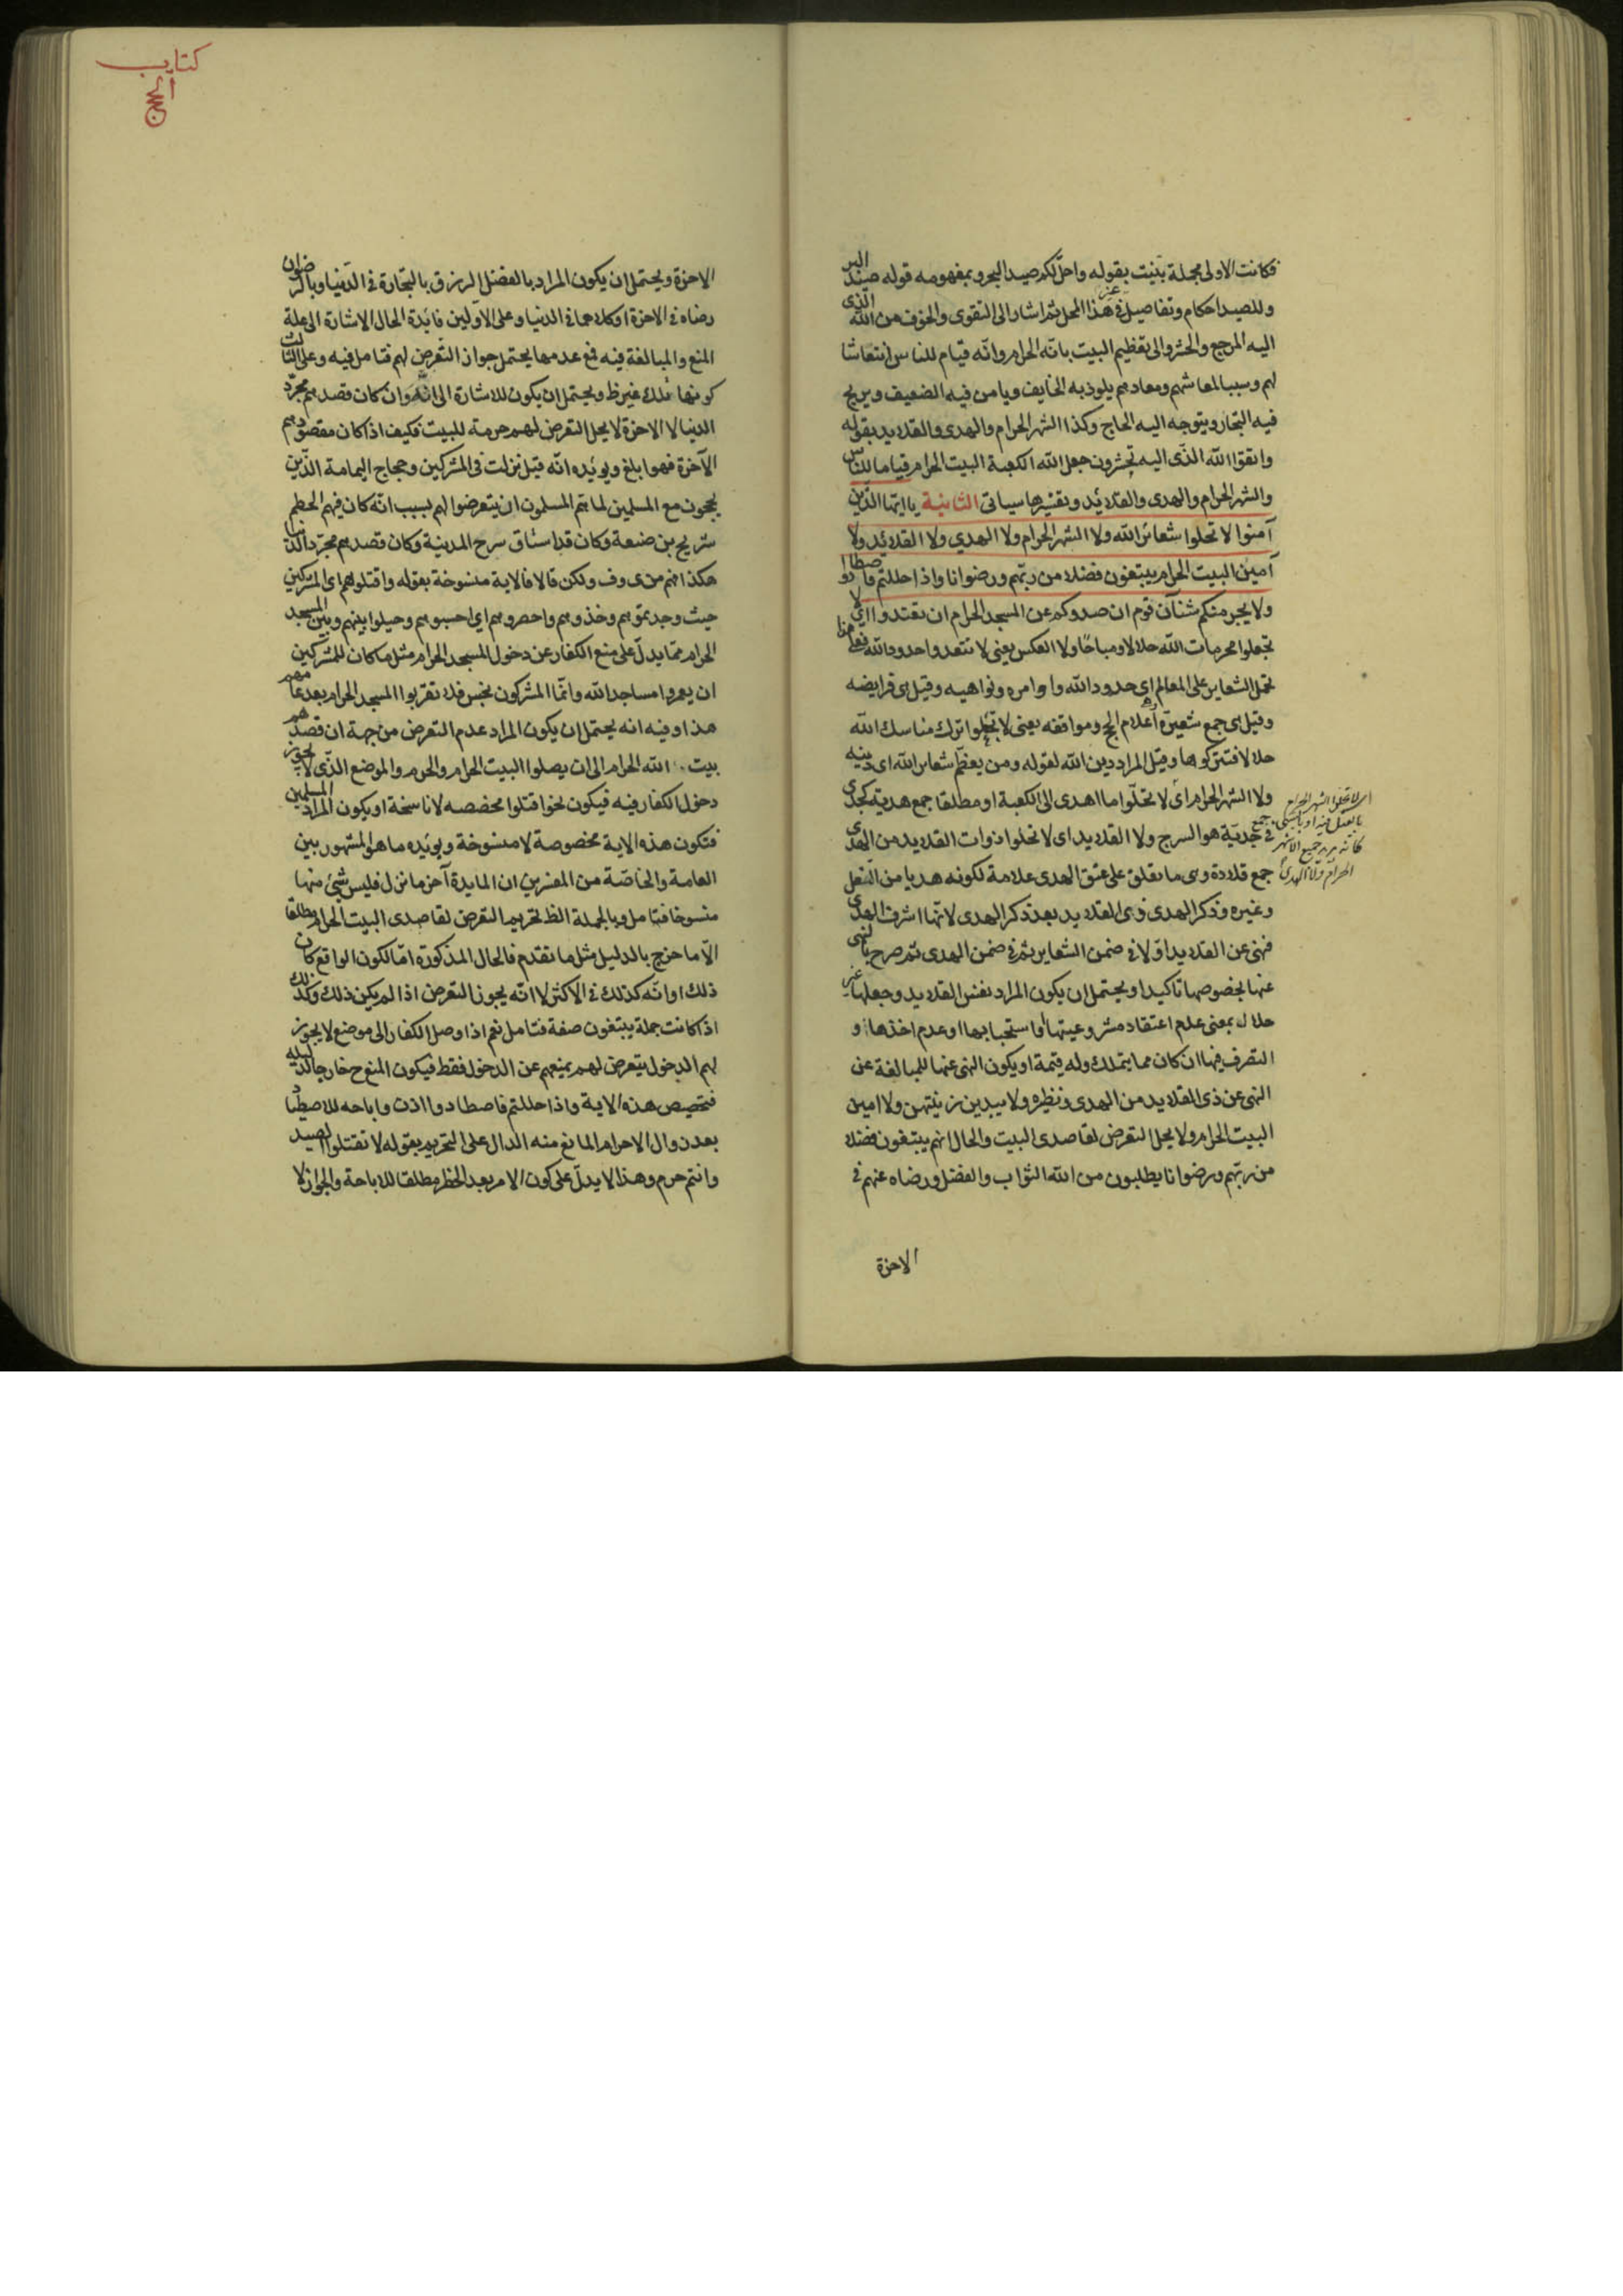 فكانت الاولى مجملة بيّنت بقوله واحلّ لكم صيد البحر وبمفهومه قوله صيد البر
وللصيد احكام وتفاصيل فى غير هذا المحل ثم اشار الى التقوى والخوف من الله الذى
اليه المرجع والحشر والى تعظيم البيت بانّه الحرام وانّه قيام للناس انتعاشا
لهم وسببا لمعاشهم ومعادهم يلوذ به الخايف ويامن فيه الضعيف ويربح
فيه التجار ويتوجه اليه الحاج وكذا الشهر الحرام والهدى والقلايد بقوله
واتقوا الله الذى اليه تحشرون جعل الله الكعبة البيت الحرام قياما للناس
والشهر الحرام والهدى والقلائد وتفسيرها سياتى الثانية يا ايّها الذين
آمنوا لا تحلوا شعائر الله ولا الشهر الحرام ولا الهدي ولا القلائد ولا
آمين البيت الحرام يبتغون فضلا من ربّهم ورضوانا واذا حللتم فاصطادوا
ولا يجرمنكم شنآن قوم ان صدوكم عن المسجد الحرام ان تعتدوا اى لا
تجعلوا محرمات الله حلالا ومباحًا ولا العكس يعنى لا تتعدوا حدود الله
تحمل الشعاير على المعالم اى حدود الله واوامره ونواهيه وقيل هى فرايضه
وقيل هى جمع شعيرة اعلام الحج ومواقفه يعنى لا تجعلوا ترك مناسك الله
حلالا فتتركوها وقيل المراد دين الله لقوله ومن يعظّم شعاير الله اى دينه
ولا الشهر الحرام اى لا تحلّوا ما اهدى الى الكعبة او مطلقا جمع هدية كجدى
فى جمع جدية هو السرج ولا القلايد اى لا تحلوا ذوات القلايد من الهدى
جمع قلادة وهى ما يعلق على عنق الهدى علامة لكونه هديا من النعل
وغيره وذكر الهدى ذى القلايد بعد ذكر الهدى لانّها اشرف الهدى
فنهى عن القلايد اوّلا فى ضمن الشعاير ثم فى ضمن الهدى ثم صرح بالنهى
عنها بخصوصها تاكيدا ويحتمل ان يكون المراد نفس القلايد وجعلها غير
حلال بمعنى عدم اعتقاد مشروعيتها واستحبابها او عدم اخذها و
التصرف فيها ان كان مما يتملك وله قيمة او يكون النهى عنها للمبالغة عن
النهى عن ذى القلايد من الهدى ونظيره ولا يبدين زينتهن ولا امين
البيت الحرام ولا يحل التعرض لقاصدى البيت والحال انهم يبتغون فضلا
من ربّهم ورضوانا يطلبون من الله الثواب والفضل ورضاه عنهم فى
الاخرة
اى لا تحلوا الشهر الحرام
بالقتل فيه او بالنسئ
كانه يريد جميع الاشهر
الحرام ولا الهدى
كتاب
الحج
الاخرة ويحتمل ان يكون المراد بالفضل الرزق بالتجارة فى الدّنيا وبالرضوان
رضاه فى الاخرة او كلاهما فى الدنيا وعلى الاوّلين فايدة الحال الاشارة الى علة
المنع والمبالغة فيه فمع عدمها يحتمل جواز التعرض لهم فتامل فيه وعلى الثالث
كونها تلك غير ظ ويحتمل ان يكون للاشارة الى انّه وان كان قصدهم مجرّد
الدنيا لا الاخرة لا يحل التعرض لهم حرمة للبيت فكيف اذا كان مقصودهم
الآخرة فهو ابلغ ويويّده انّه قيل نزلت فى المشركين وحجاج اليمامة الذّين
يحجون مع المسلمين لما همّ المسلمون ان يتعرضوا لهم بسبب انّه كان فيهم الحطم
شريح بن ضبعة وكان قد استاق سرح المدينة وكان قصدهم مجرّد الدنيا
هكذا فهم من ى وف ولكن قالا فالاية منسوخة بقوله واقتلوهم اى المشركين
حيث وجدتموهم وخذوهم واحصروهم اى احبسوهم وحيلوا بينهم وبين المسجد
الحرام ممّا يدلّ على منع الكفار عن دخول المسجد الحرام مثل ما كان للمشركين
ان يعمروا مساجد الله وانّما المشركون نجس فلا تقربوا المسجد الحرام بعد عامهم
هذا وفيه انه يحتمل ان يكون المراد عدم التعرض من جهة ان قصدهم
بيت الله الحرام الى ان يصلوا البيت الحرام والحرم والموضع الذّى لا يجوز
دخول الكفار فيه فيكون نحو اقتلوا مخصصه لا ناسخة او يكون المراد المسلمين
فتكون هذه الاية مخصوصة لا منسوخة ويويّده ما هو المشهور بين
العامة والخاصّة من المفسرين ان المايدة آخر ما نزل فليس شئ منها
منسوخا فتامل وبالجملة الظ تحريم التعرض لقاصدى البيت الحرام مطلقا
الّا ما خرج بالدليل مثل ما تقدم فالحال المذكورة امّا لكون الواقع كان
ذلك او انّه كذلك فى الاكثر لا انّه يجوز التعرض اذا لم يكن ذلك وكذلك
اذا كانت جملة يبتغون صفة فتامل نعم اذا وصل الكفار الى موضع لا يجوز
لهم الدخول يتعرض لهم بمنعهم عن الدخول فقط فيكون المنع ح خارجا لدليله
فتخصيص هذه الاية واذا حللتم فاصطادوا اذن واباحه للاصطياد
بعد زوال الاحرام المانع منه الدال على التحريم بقوله لا تقتلوا الصيد
وانتم حرم وهذا لا يدلّ على كون الامر بعد الحظر مطلقا للاباحة والجواز لا